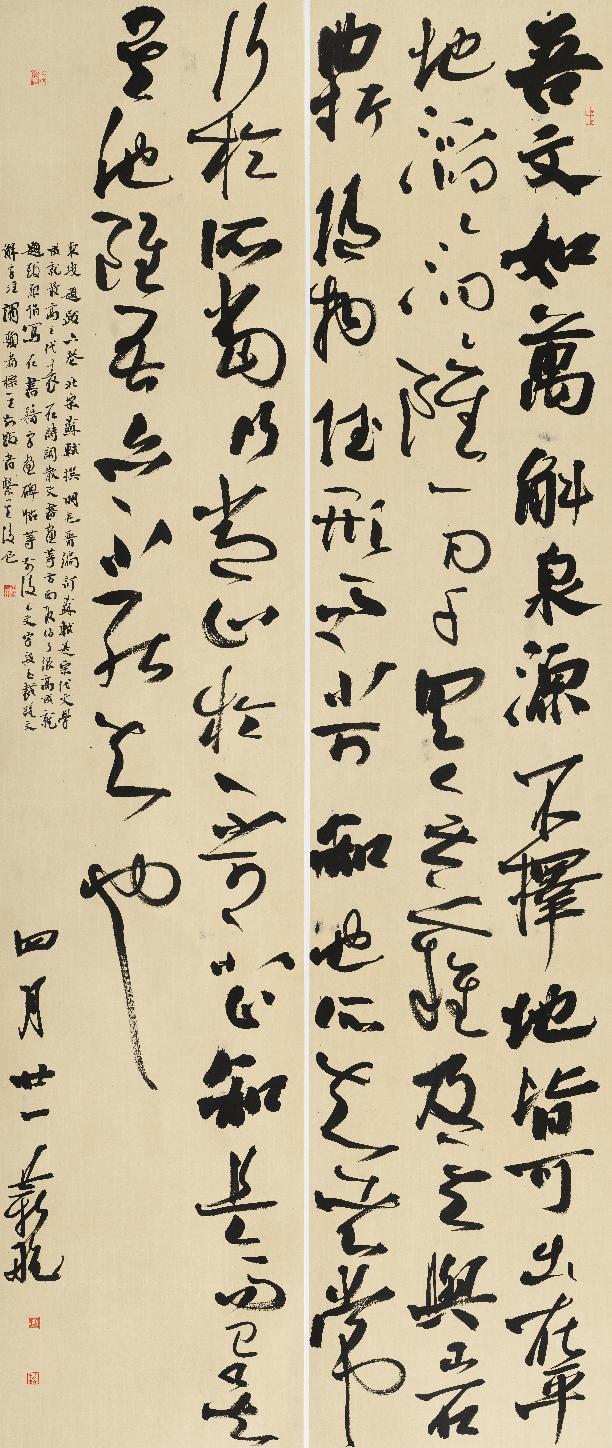 吾文如萬斛泉源不擇地皆可出在平
地滔滔汩汩雖一日千里無難及其與山石
曲折隨物賦形而不可知也所常
行於所當行常止於不可不止知是而已矣
其他雖吾亦不能知也
東坡題跋六卷北宋蘇軾撰明毛晉編訂蘇軾是宋代文學
成就最高之代表在詩詞散文書畫等方面取得了很高成就
題跋即指寫在書籍字畫碑帖等前後之文字
四月廿一航